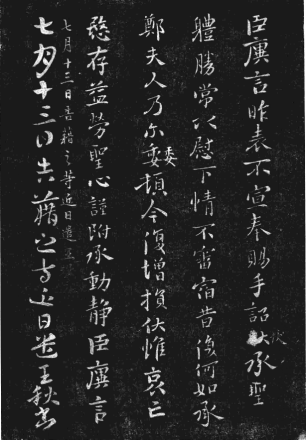 臣廙言昨表不宣奉賜手詔伏承聖
體勝常以慰下情不審宿昔復何如承
鄭夫人乃尓委頓今復增損伏惟哀亡
愍存益勞聖心謹附承動靜臣廙言
七月十三日告藉之等近日遣王
七月十三日告藉之等近日遣王秋書